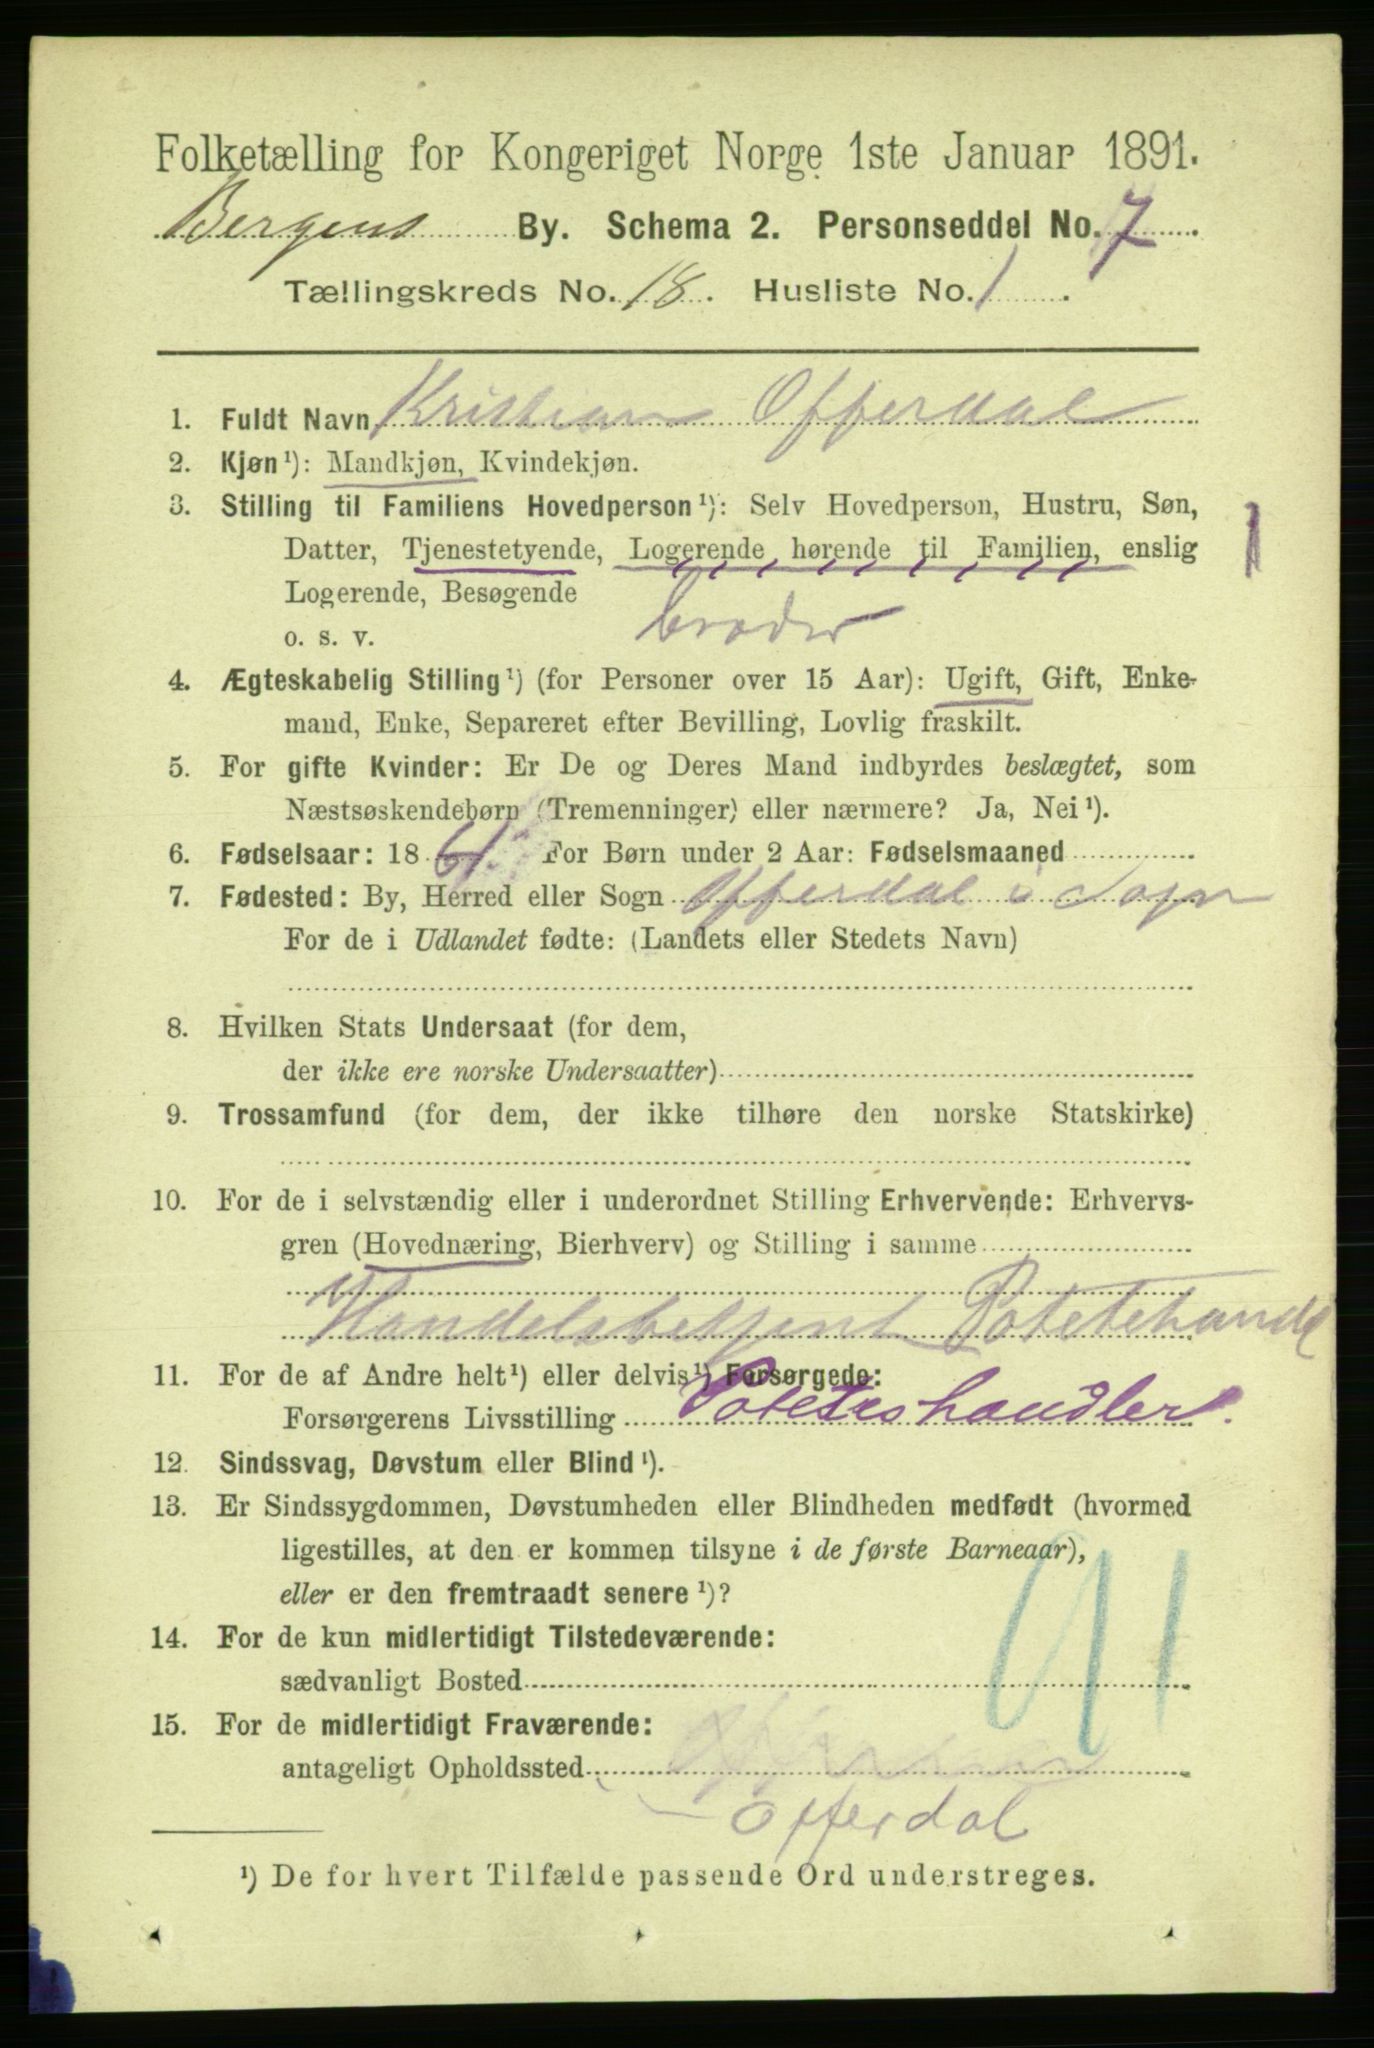 Folketælling for Kongeriget Norge 1ste Januar 1891.
Bergens By. Schema 2. Personseddel No. 7
Tællingskreds No. 18. Husliste No. 1.
1. Fuldt Navn Kristian Offerdal
2. Kjøn¹): Mandkjøn, Kvindekjøn.
3. Stilling til Familiens Hovedperson¹): Selv Hovedperson, Hustru, Søn,
Datter, Tjenestetyende, Logerende hørende til Familien, enslig
Logerende, Besøgende
o. s. v. broder
4. Ægteskabelig Stilling¹) (for Personer over 15 Aar): Ugift, Gift, Enke-
mand, Enke, Separeret efter Bevilling, Lovlig fraskilt.
5. For gifte Kvinder: Er De og Deres Mand indbyrdes beslægtet, som
Næstsøskendebørn (Tremenninger) eller nærmere? Ja, Nei¹).
6. Fødselsaar: 18 61. For Børn under 2 Aar: Fødselsmaaned
7. Fødested: By, Herred eller Sogn Offerdal i Sogn
For de i Udlandet fødte: (Landets eller Stedets Navn)
8. Hvilken Stats Undersaat (for dem,
der ikke ere norske Undersaatter)
9. Trossamfund (for dem, der ikke tilhøre den norske Statskirke)
10. For de i selvstændig eller i underordnet Stilling Erhvervende: Erhvervs-
gren (Hovednæring, Bierhverv) og Stilling i samme
Handelsbetjent Potetehandel
11. For de af Andre helt¹) eller delvis¹) Forsørgede:
Forsørgerens Livsstilling Poteteshandler.
12. Sindssvag, Døvstum eller Blind¹).
13. Er Sindssygdommen, Døvstumheden eller Blindheden medfødt (hvormed
ligestilles, at den er kommen tilsyne i de første Barneaar),
eller er den fremtraadt senere¹)?
91
14. For de kun midlertidigt Tilstedeværende:
sædvanligt Bosted
15. For de midlertidigt Fraværende:
antageligt Opholdssted
Offerdal
¹) De for hvert Tilfælde passende Ord understreges.